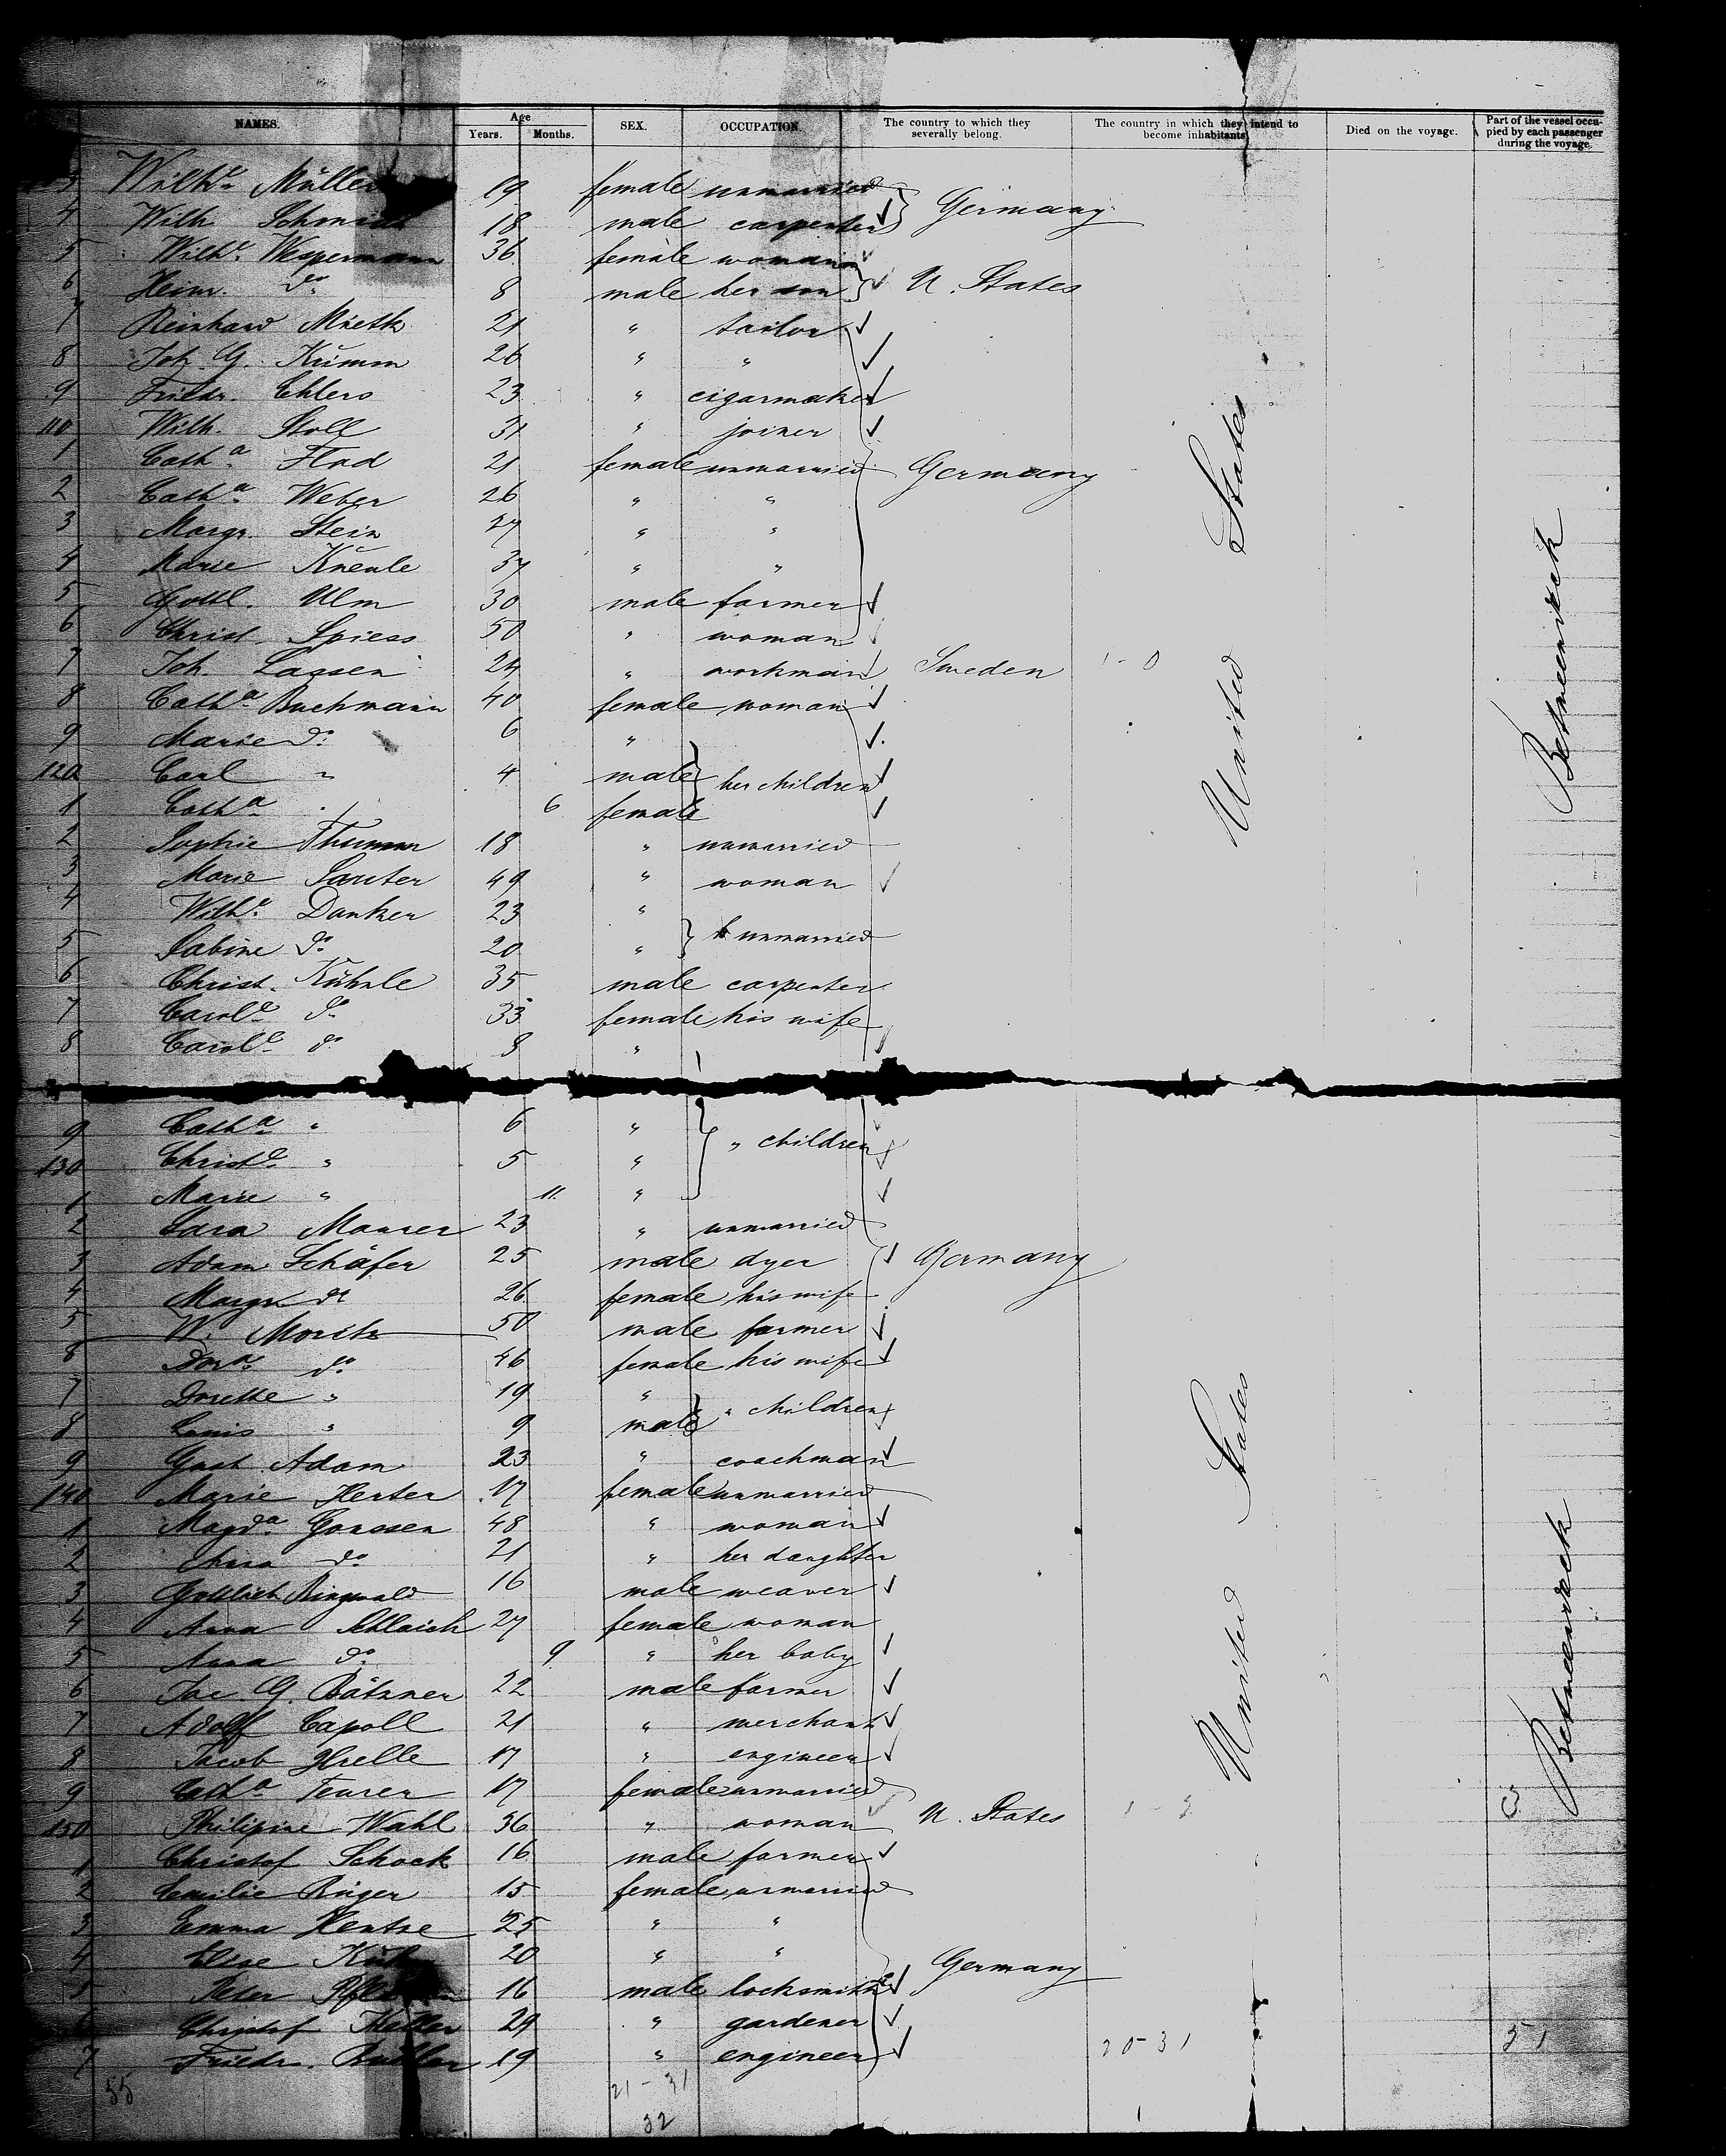 NAMES. Age Years. Months. SEX. OCCUPATION. The country to which they severally belong. The country in which they intend to become inhabitants. Died on the voyage. Part of the vessel occupied by each passenger during the voyage.
3 Wilhe. Müller 19 female unmarried
4 Wilh Schmidt 18 male carpenter Germany
5 Wilhe. Wespermann 36 female woman
6 Heinr. do. 8 male her son U. States
7 Reinhard Mieth 21 " tailor
8 Joh. G. Kümm 26 " "
9 Friedr. Ehlers 23 " cigarmaker
110 Wilh. Stoll 31 " joiner
1 Catha. Flad 21 female unmarried Germany
2 Catha. Weber 26 " "
3 Margr. Stein 27 " "
4 Marie Kneule 37 " "
5 Gottl. Ulm 30 male farmer
6 Christ. Spiess 50 " woman
7 Joh. Lassen 24 " workman Sweden 1-0
8 Catha. Buchmann 40 female woman
9 Marie do. 6 "
120 Carl " 4 male her children
1 Catha. 6 female
2 Sophie Thumm 18 " unmarried
3 Marie Sauter 49 " woman
4 Wilhe. Danker 23 "
5 Sabine do. 20 " unmarried
6 Christ. Kühnle 35 male carpenter
7 Carole. do. 33 female his wife
8 Carole. do. 8 "
9 Catha. " 6 " " children
130 Christe. " 5 "
1 Marie " 11 "
2 Sara Maurer 23 " unmarried
3 Adam Schäfer 25 male dyer Germany
4 Margr. do 26 female his wife
5 W. Moritz 50 male farmer
6 Dora. do. 46 female his wife
7 Dorette " 19 " " children
8 Louis " 9 male
9 Gust. Adam 23 " coachman
140 Marie Herter 17 female unmarried
1 Magda. Gonssen 48 " woman
2 Anna do. 21 " her daughter
3 Gottlieb Ringwald 16 male weaver
4 Anna Schlaich 27 female woman
5 Anna do. 9 " her baby
6 Jac. G. Bätzner 22 male farmer
7 Adolf Capoll 21 " merchant
8 Jacob Hrelle 17 " engineer
9 Catha. Teurer 17 female unmarried
150 Philipine Wahl 36 " woman U. States
1 Christof Schock 16 male farmer
2 Emilie Rüger 15 female unmarried
3 Emma Hentze 25 " "
4 Elise 20 " " Germany
5 Peter 16 male locksmith
Christof Keller 29 " gardener
7 Friedr. 19 " engineer
United States
Betweendeck
United States
Betweendeck
3
20-31
51
55
21-31
32